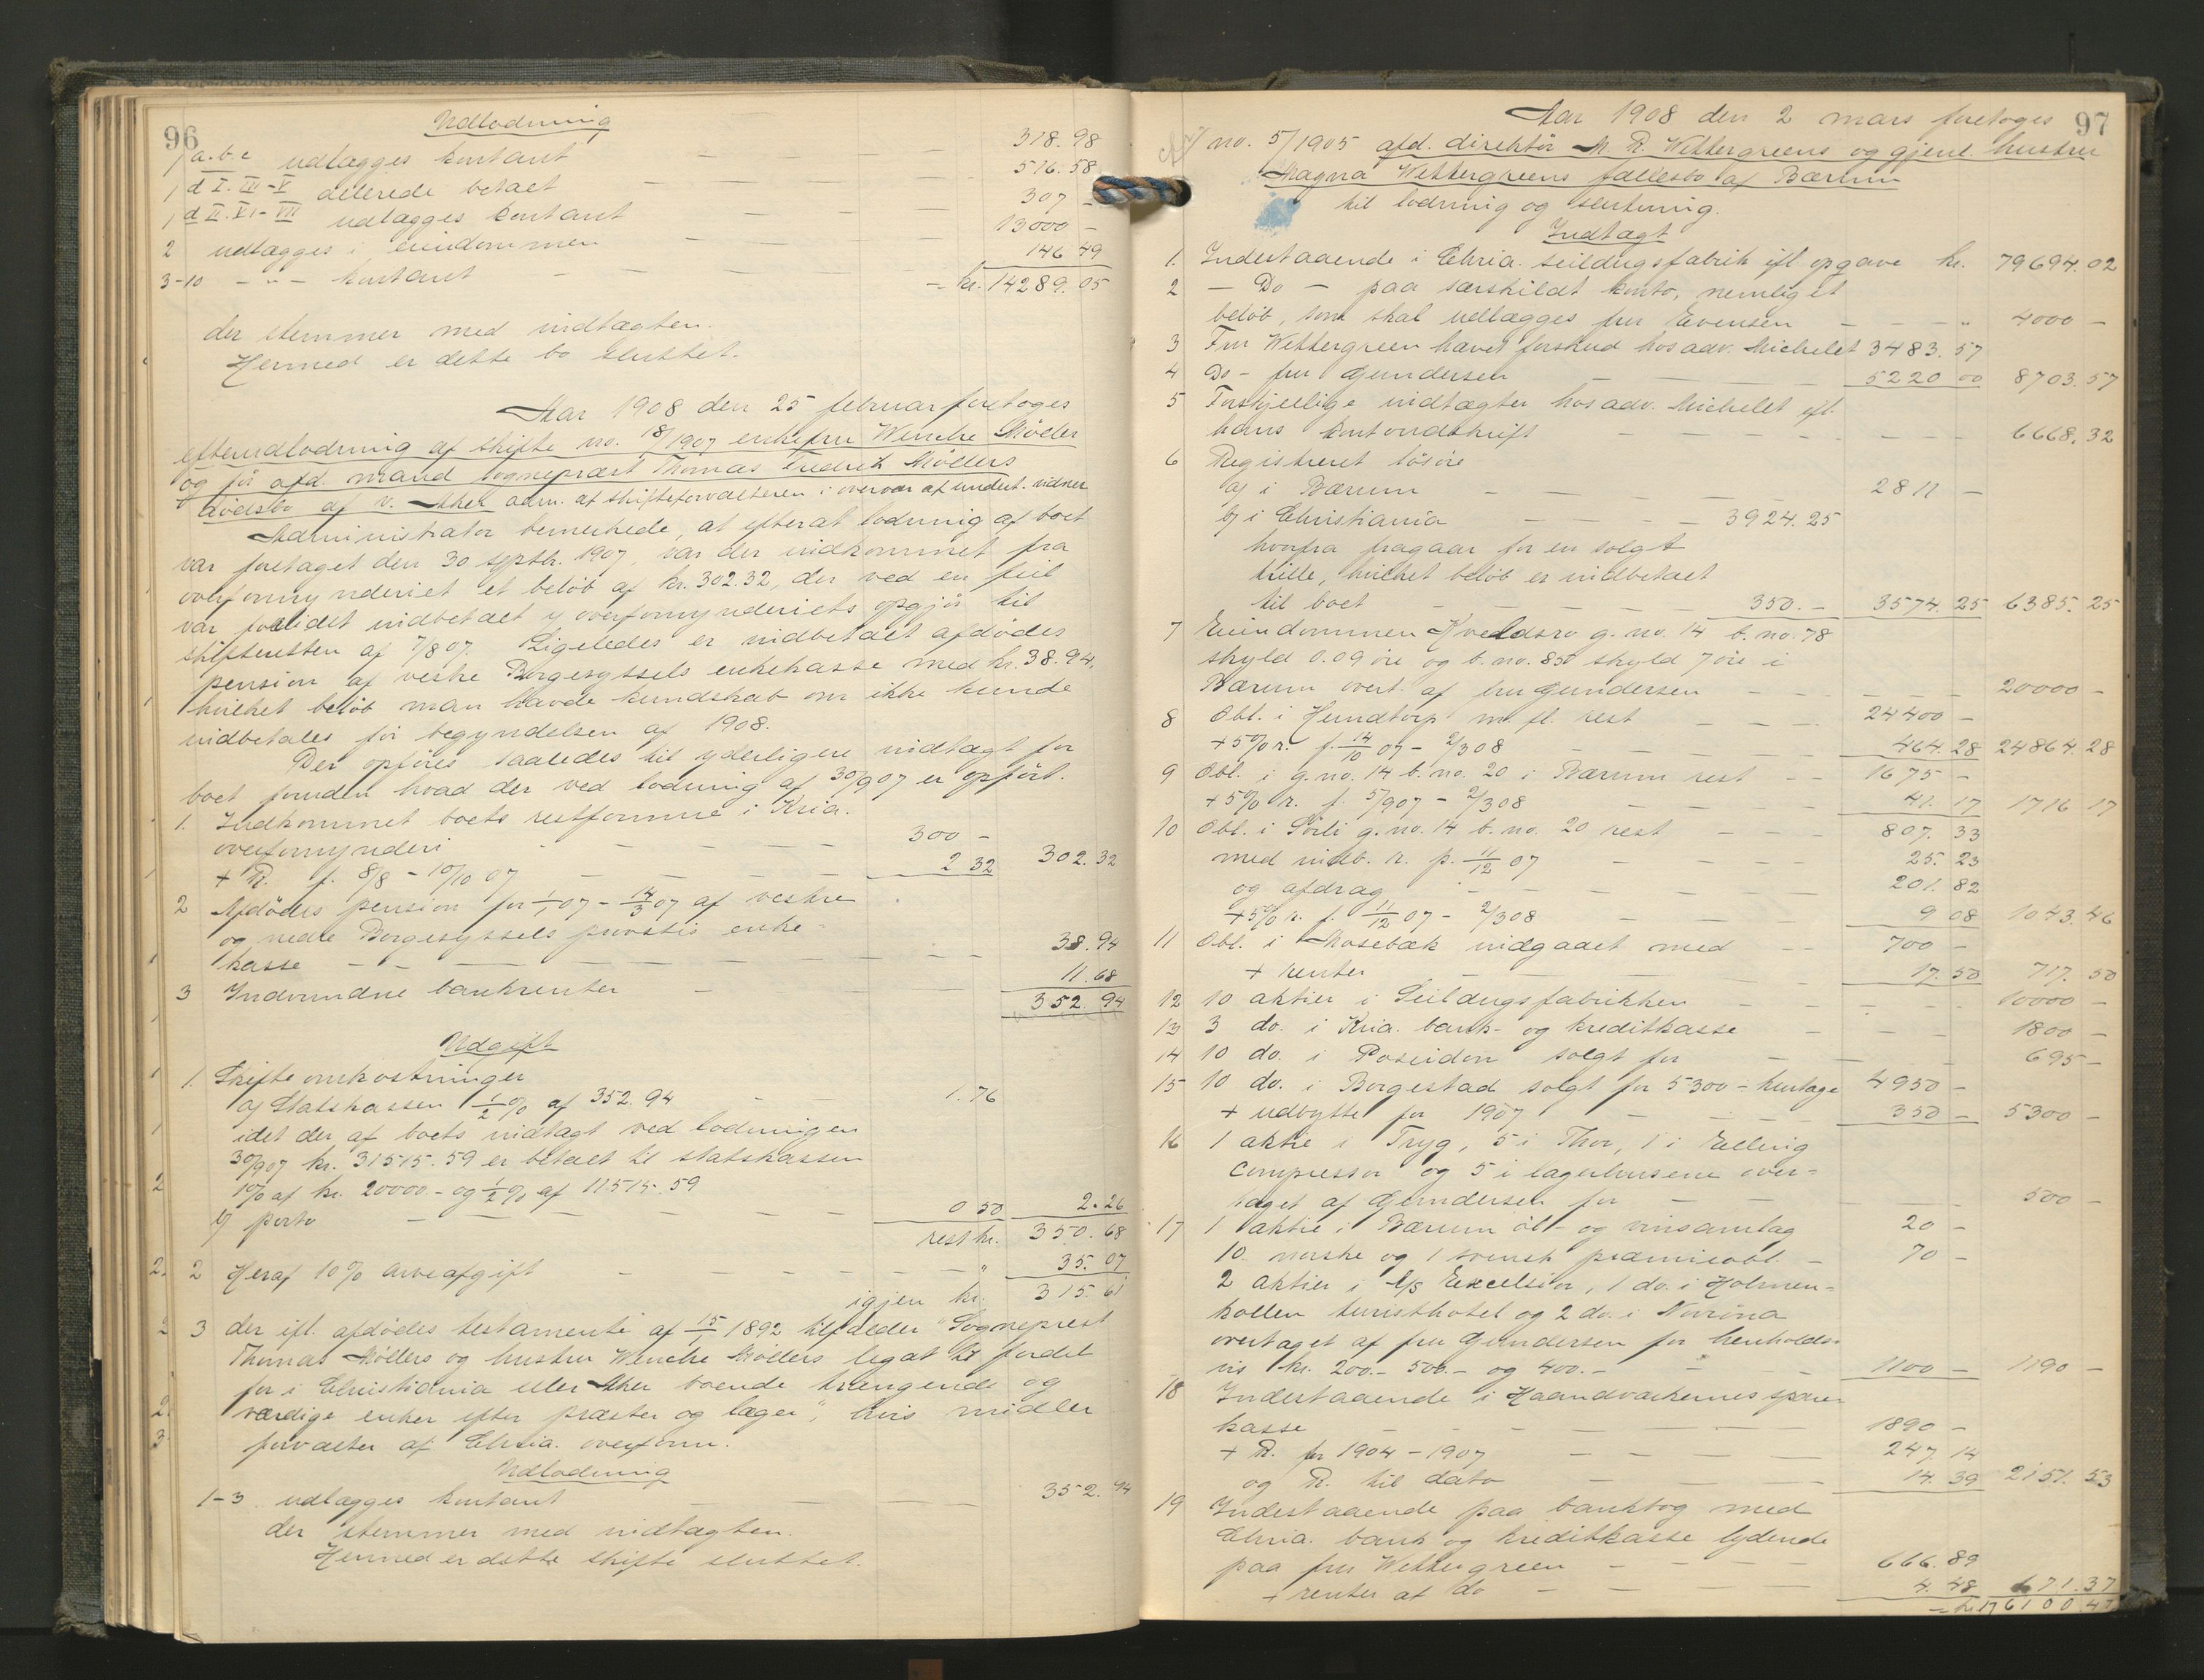 96
Udlodning
1 a.b.c udlægges kontant — — — 318.98
1 d I. III-V allerede betalt — — — 516.58
1 d II. VI-VII udlægges kontant — — — 307 —
2 udlægges i eiendommen — — — 13000 —
3-10 -"- kontant — — — 146 49
— kr. 14289.05
der stemmer med indtægten.
Hermed er dette bo sluttet.
Aar 1908 den 25 februar foretoges
efterudlodning af skifte no. 18/1907 enkefru Wenche Møller
og før afd. mand sognepræst Thomas Fredrik Møllers
dødsbo af v. Aker adm. af skifteforvalteren i overvær af undert. vidner
Administrator bemerkede, at efterat lodning af boet
var foretaget den 30 septbr. 1907, var der indkommet fra
overformynderiet et beløb af kr. 302.32, der ved en feil
var forlidet indbetalt y overformynderiets opgjør til
skifteretten af 7/8 07. Ligeledes er indbetalt afdødes
pension af vestre Borgesyssels enkekasse med kr. 38.94,
hvilket beløb man havde kundskab om ikke kunde
indbetales før begyndelsen af 1908.
Der opføres saaledes til yderligere indtægt for
boet foruden hvad der ved lodning af 30/9 07 er opført.
1. Indkommet boets restformue i Kria.
overformynderi — — — 300 —
+ R. f. 8/8 - 10/10 07 — — 2 32 302.32
2 Afdødes pension for 1/1 07 - 14/3 07 af vestre
og nedre Borgesyssels provstis enke-
kasse — — — 38.94
3 Indvundne bankrenter — — — 11.68
352.94
Udgift
1. Skifteomkostninger
a) Statskassen 1/2 % af 352.94 — — 1.76
idet der af boets indtægt ved lodningen
30/9 07 kr. 31515.59 er betalt til statskassen
1% af kr. 20000.- og 1/2 % af 11515.59
b) porto — — — 0 50 2.26
rest kr. 350.68
2 Heraf 10% arveafgift — — — " 35.07
igjen kr. 315.61
3 der ifl. afdødes testamente af 15/1 1892 tilfalder "Sogneprest
Thomas Møllers og hustru Wenche Møllers legat til fordel
for i Christiania eller Aker boende trængende og
værdige enker efter præster og læger", hvis midler
forvaltes af Chria. overform.
Udlodning
1-3. udlægges kontant — — — 352.94
der stemmer med indtægten.
Hermed er dette skifte sluttet.
97
Aar 1908 den 2 mars foretoges
no. 5/1905 afd. direktør M. R. Wettergreens og gjenl. hustru
Magna Wettergreens fællesbo af Bærum
til lodning og slutning.
Indtægt
1. Indestaaende i Chria. seildugsfabrik ifl. opgave kr. 79694.02
2 — Do — paa særskildt konto, nemlig et
beløb, som skal udlægges fru Evensen — — — " 4000 —
3 Fru Wettergreen hævet forskud hos adv. Michelet 3483.57
4 Do - fru Gundersen — — — 5220 00 8703.57
5 Forskjellige indtægter hos adv. Michelet ifl.
hans kontoudskrift — — — 6668.32
6 Registreret løsøre
a) i Bærum — — — 2811 —
b) i Christiania — — — 3924.25
hvorfra fragaar for en solgt
trille, hvilket beløb er indbetalt
til boet — — — 350.— 3574.25 6385.25
7 Eiendommen Kveldsro g.no. 14 b.no. 78
skyld 0.09 øre og b.no. 850 skyld 7 øre i
Bærum overt. af fru Gundersen — — — 20000 —
8 Obl. i Hundtorp m. fl. rest — — — 24400 —
+ 5% r. f. 14/10 07 - 2/3 08 — — — 464.28 24864.28
9 Obl. i g.no. 14 b.no. 20 i Bærum rest — — 1675 —
+ 5% r. f. 5/9 07 - 2/3 08 — — — 41.17 1716 17
10 Obl. i Sörli g.no. 14 b.no. 20 rest — — — 807.33
med indb. r. p. 11/12 07 — — — 25.23
og afdrag — — — 201.82
+ 5% r. f. 11/12 07 - 2/3 08 — — — 9 08 1043.46
11 Obl. i Mosebæk indgaaet med — — 700 —
+ renter — — — 17.50 717.50
12 10 aktier i Seildugsfabrikken — — — 10000 —
13 3 do. i Kria. bank- og kreditkasse — — — 1800 —
14 10 do. i Poseidon solgt for — — — 695 —
15 10 do. i Borgestad solgt for 5300 - 4950 —
+ udbytte for 1907 — — — 350 — 5300 —
16 1 aktie i Tryg, 5 i Thor, 1 i
Compressor og 5 i lagerhusene over-
taget af Gundersen for — — — 500 —
17 1 aktie i Bærum øl- og vinsamlag 20 —
10 norske og 1 svensk præmieobl. — 70 —
2 aktier i A/S Excelsior, 1 do. i Holmen-
kollen turisthotel og 2 do. i Norröna
overtaget af fru Gundersen for henholds-
vis kr. 200.- 500.- og 400.- — — 1100 — 1190 —
18 Indestaaende i Haandværkernes spare-
kasse — — — 1890 —
+ R. for 1904 - 1907 — — — 247.14
og R. til dato — — — 14.39 2151.53
19 Indestaaende paa bankbog med
Chria. bank og kreditkasse lydende
paa fru Wettergreen — — — 666.89
+ renter af do — — — 4.48 671.37
= kr. 176100 47